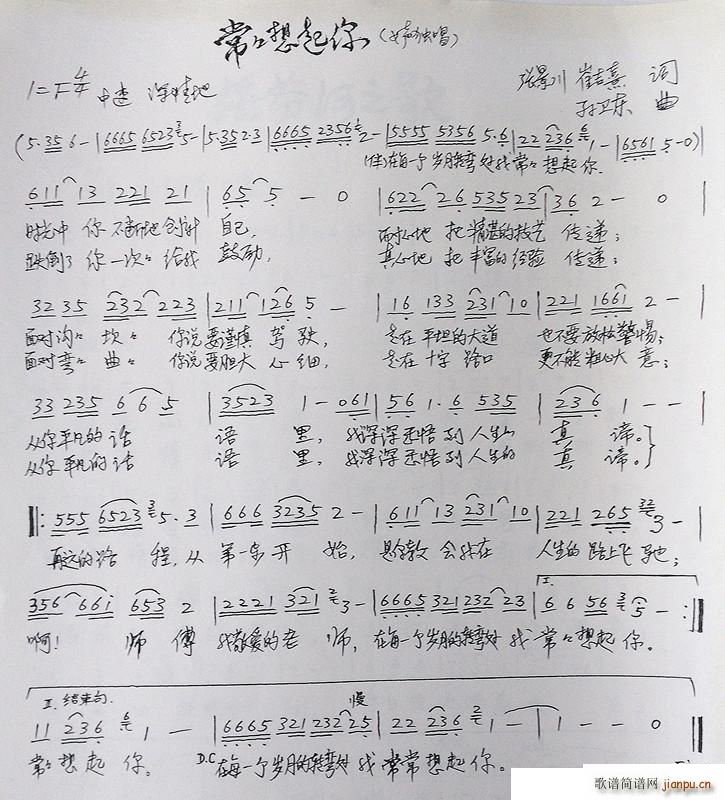 常常想起你(女声独唱)
1=F 4/4 中速 深情地
张景川 崔吉熹 词
孙卫东 曲
(5·35 6-|6665 6523 5-|5·35 2·3|6665 2356 2-|5555 5356 5·6|22 236 1-|6561 5-0)|
(伴)在每一个岁月转弯处我常常想起你.
611 13 221 21|65 5 - 0|622 26 535 23|36 2 - 0|
时光中 你 不断地创新 自己, 而耐心地 把 精湛的技艺 传递;
跌倒了 你一次次 给我 鼓励, 真心地 把 丰富的经验 传递;
32 35 232 223|211 126 5 -|16 133 231 10|221 1661 2 -|
面对沟沟 坎坎 你说要谨慎 驾驶, 走在 平坦的大道 也不要放松警惕;
面对弯弯 曲曲 你说要胆大 心细, 走在 十字路口 更不能粗心大意;
33 235 6 6 5|3523 1 - 061|56 1·6 535|236 1 - -|
从你平凡的 话 语 里, 我深深感悟到人生的 真 谛。
从你平凡的 话 语 里, 我深深感悟到人生的 真 谛。
‖:555 6523 5·3|666 3235 2 -|611 13 231 10|221 265 3 -|
再远的路 程,从 第一步开 始, 是您教 会我在 人生的路上飞驰;
356 661 653 2|2221 321 3 -|6666 5321 232 23|6 6 56 5 - :‖
I.
啊! 师 傅 我敬爱的老 师, 在每一个岁月的转弯处 我 常常想起你。
II.结束句. 慢
11 236 1 -|6665 321 232 25|22 236 1 -|1 - - 0‖
常常想起 你。 D.C 在每一个岁月的转弯处 我 常常想起 你。
歌谱简谱网 jianpu.cn